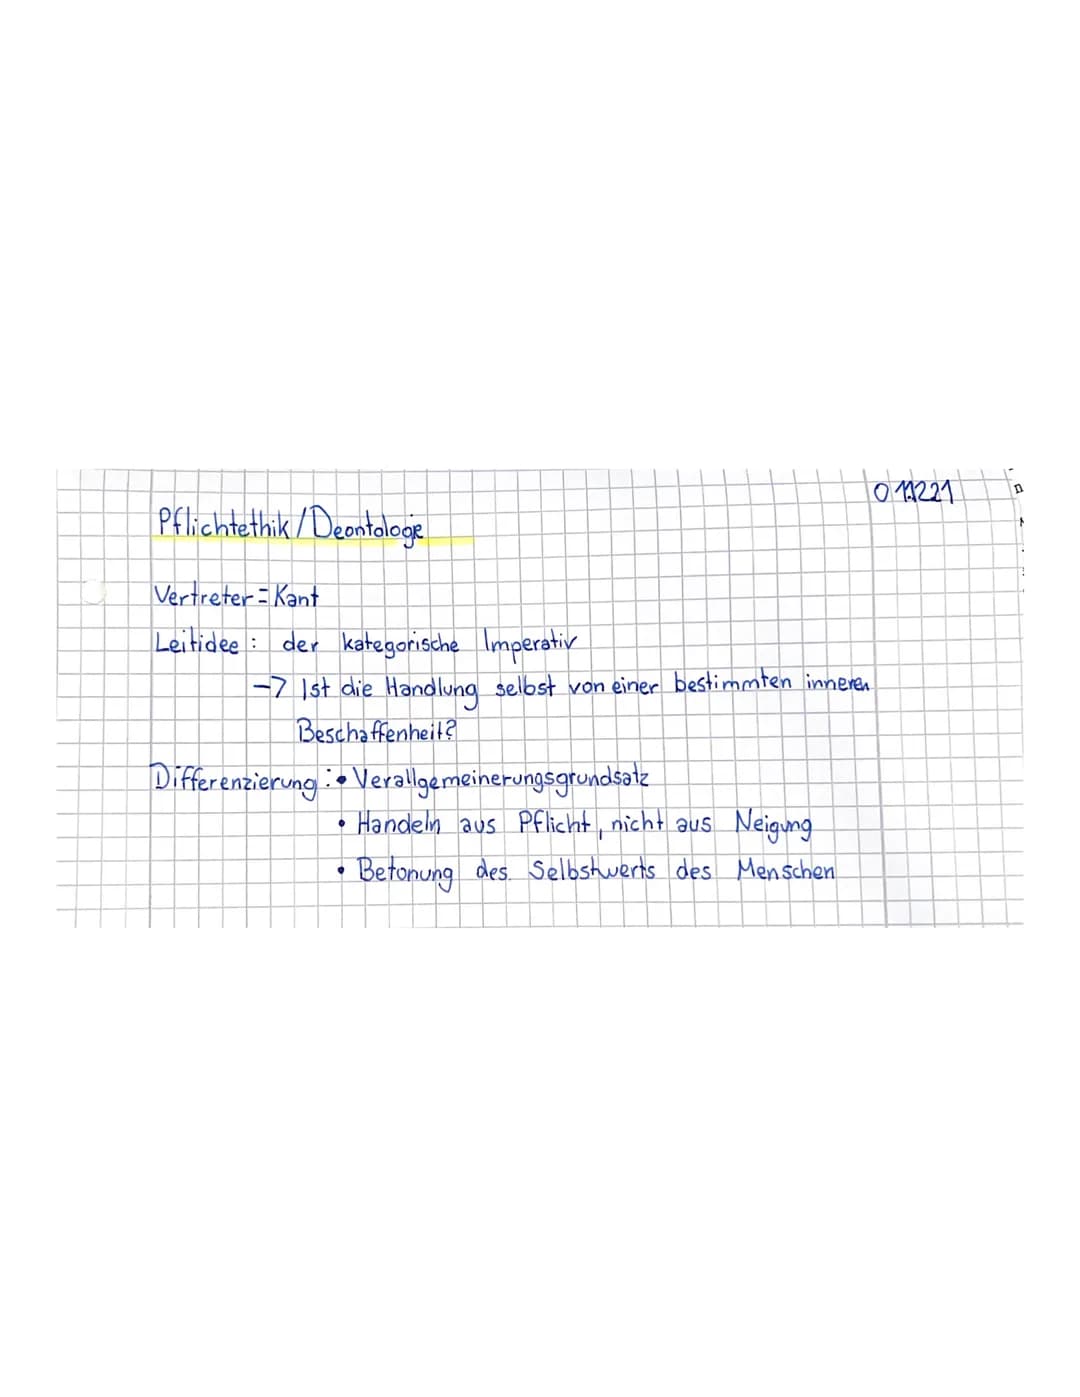 011221
Pflichtethik/Deontologie
Vertreter=Kant
Leitidee: der kategorische Imperativ
-> Ist die Handlung selbst von einer bestimmten inneren
Beschaffenheit?
Differenzierung: • Verallgemeinerungsgrundsatz
• Handeln aus Pflicht, nicht aus Neigung
• Betonung des Selbstwerts des Menschen